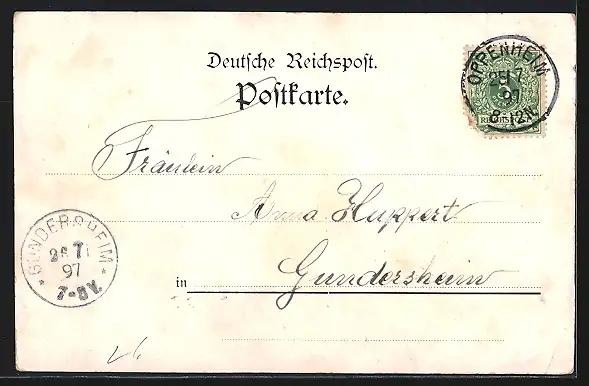 Deutsche Reichspost.
Postkarte.
OPPENHEIM
25 7
97
8-12N.
REICHSPOST
Fräulein
Anna Huppert
in Gundersheim
GUNDERSHEIM
26 7
97
7-8V.